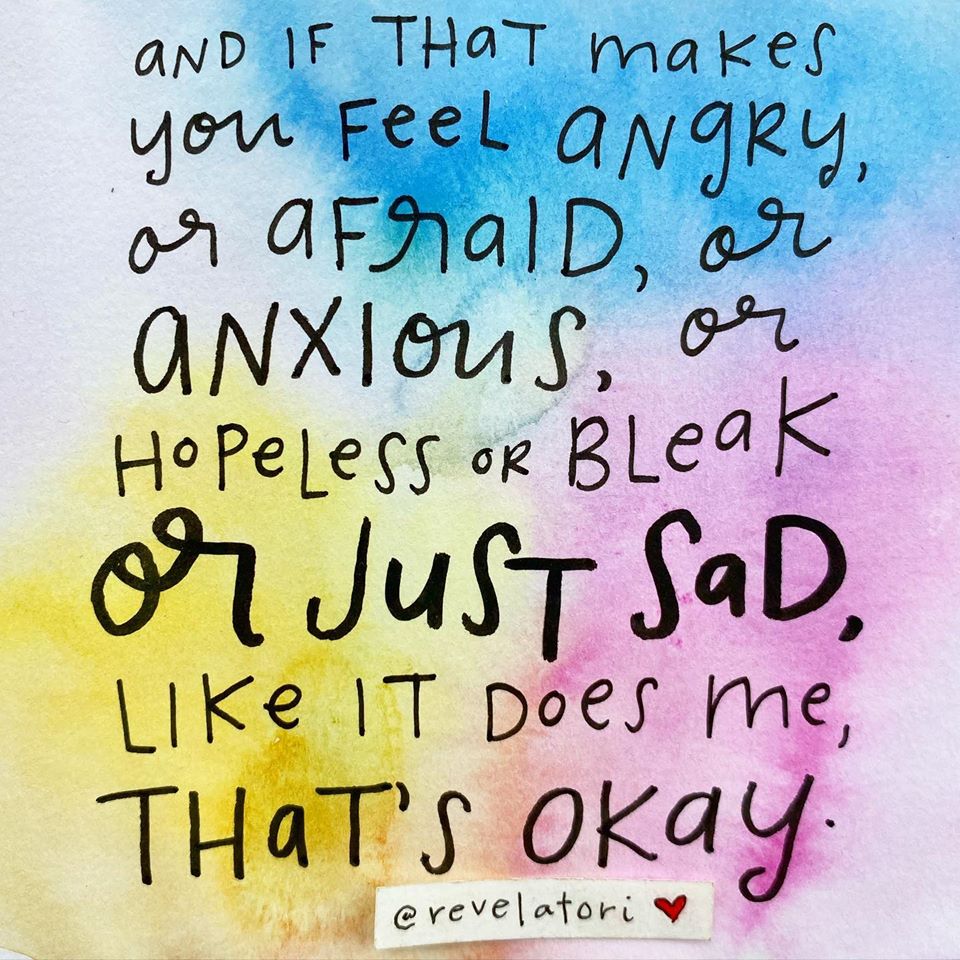 AND IF THAT makes
you FeeL ANgRy,
or AFraID, or
ANXIous, or
HoPeLess OR BLeaK
or JuST SaD,
LIKe IT Does me,
THaT's OKay.
@revelatori ❤